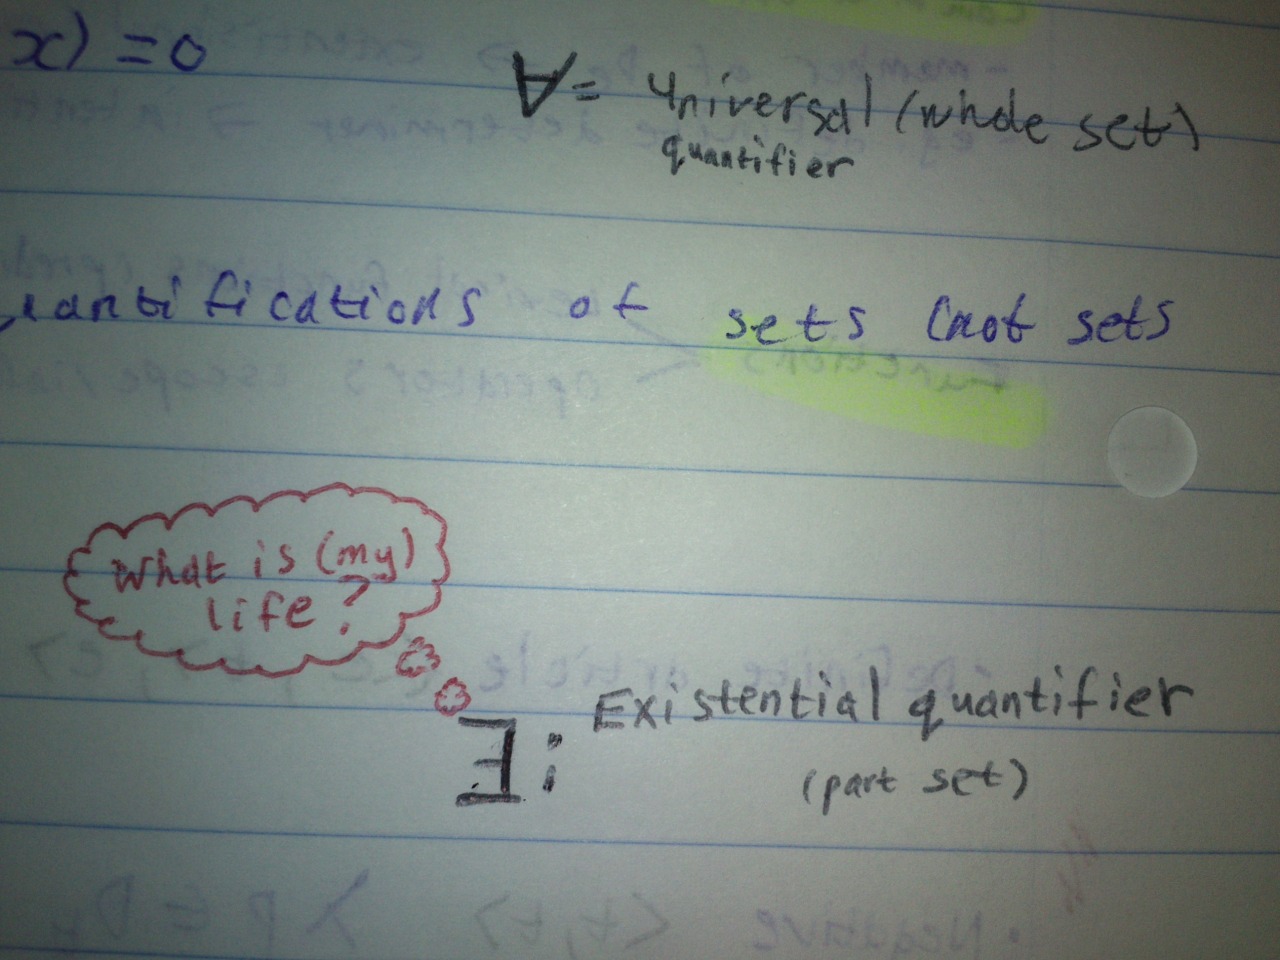 x) = 0
∀ = Universal (whole set)
quantifier
uantifications of sets (not sets
What is (my)
life?
∃: Existential quantifier
(part set)